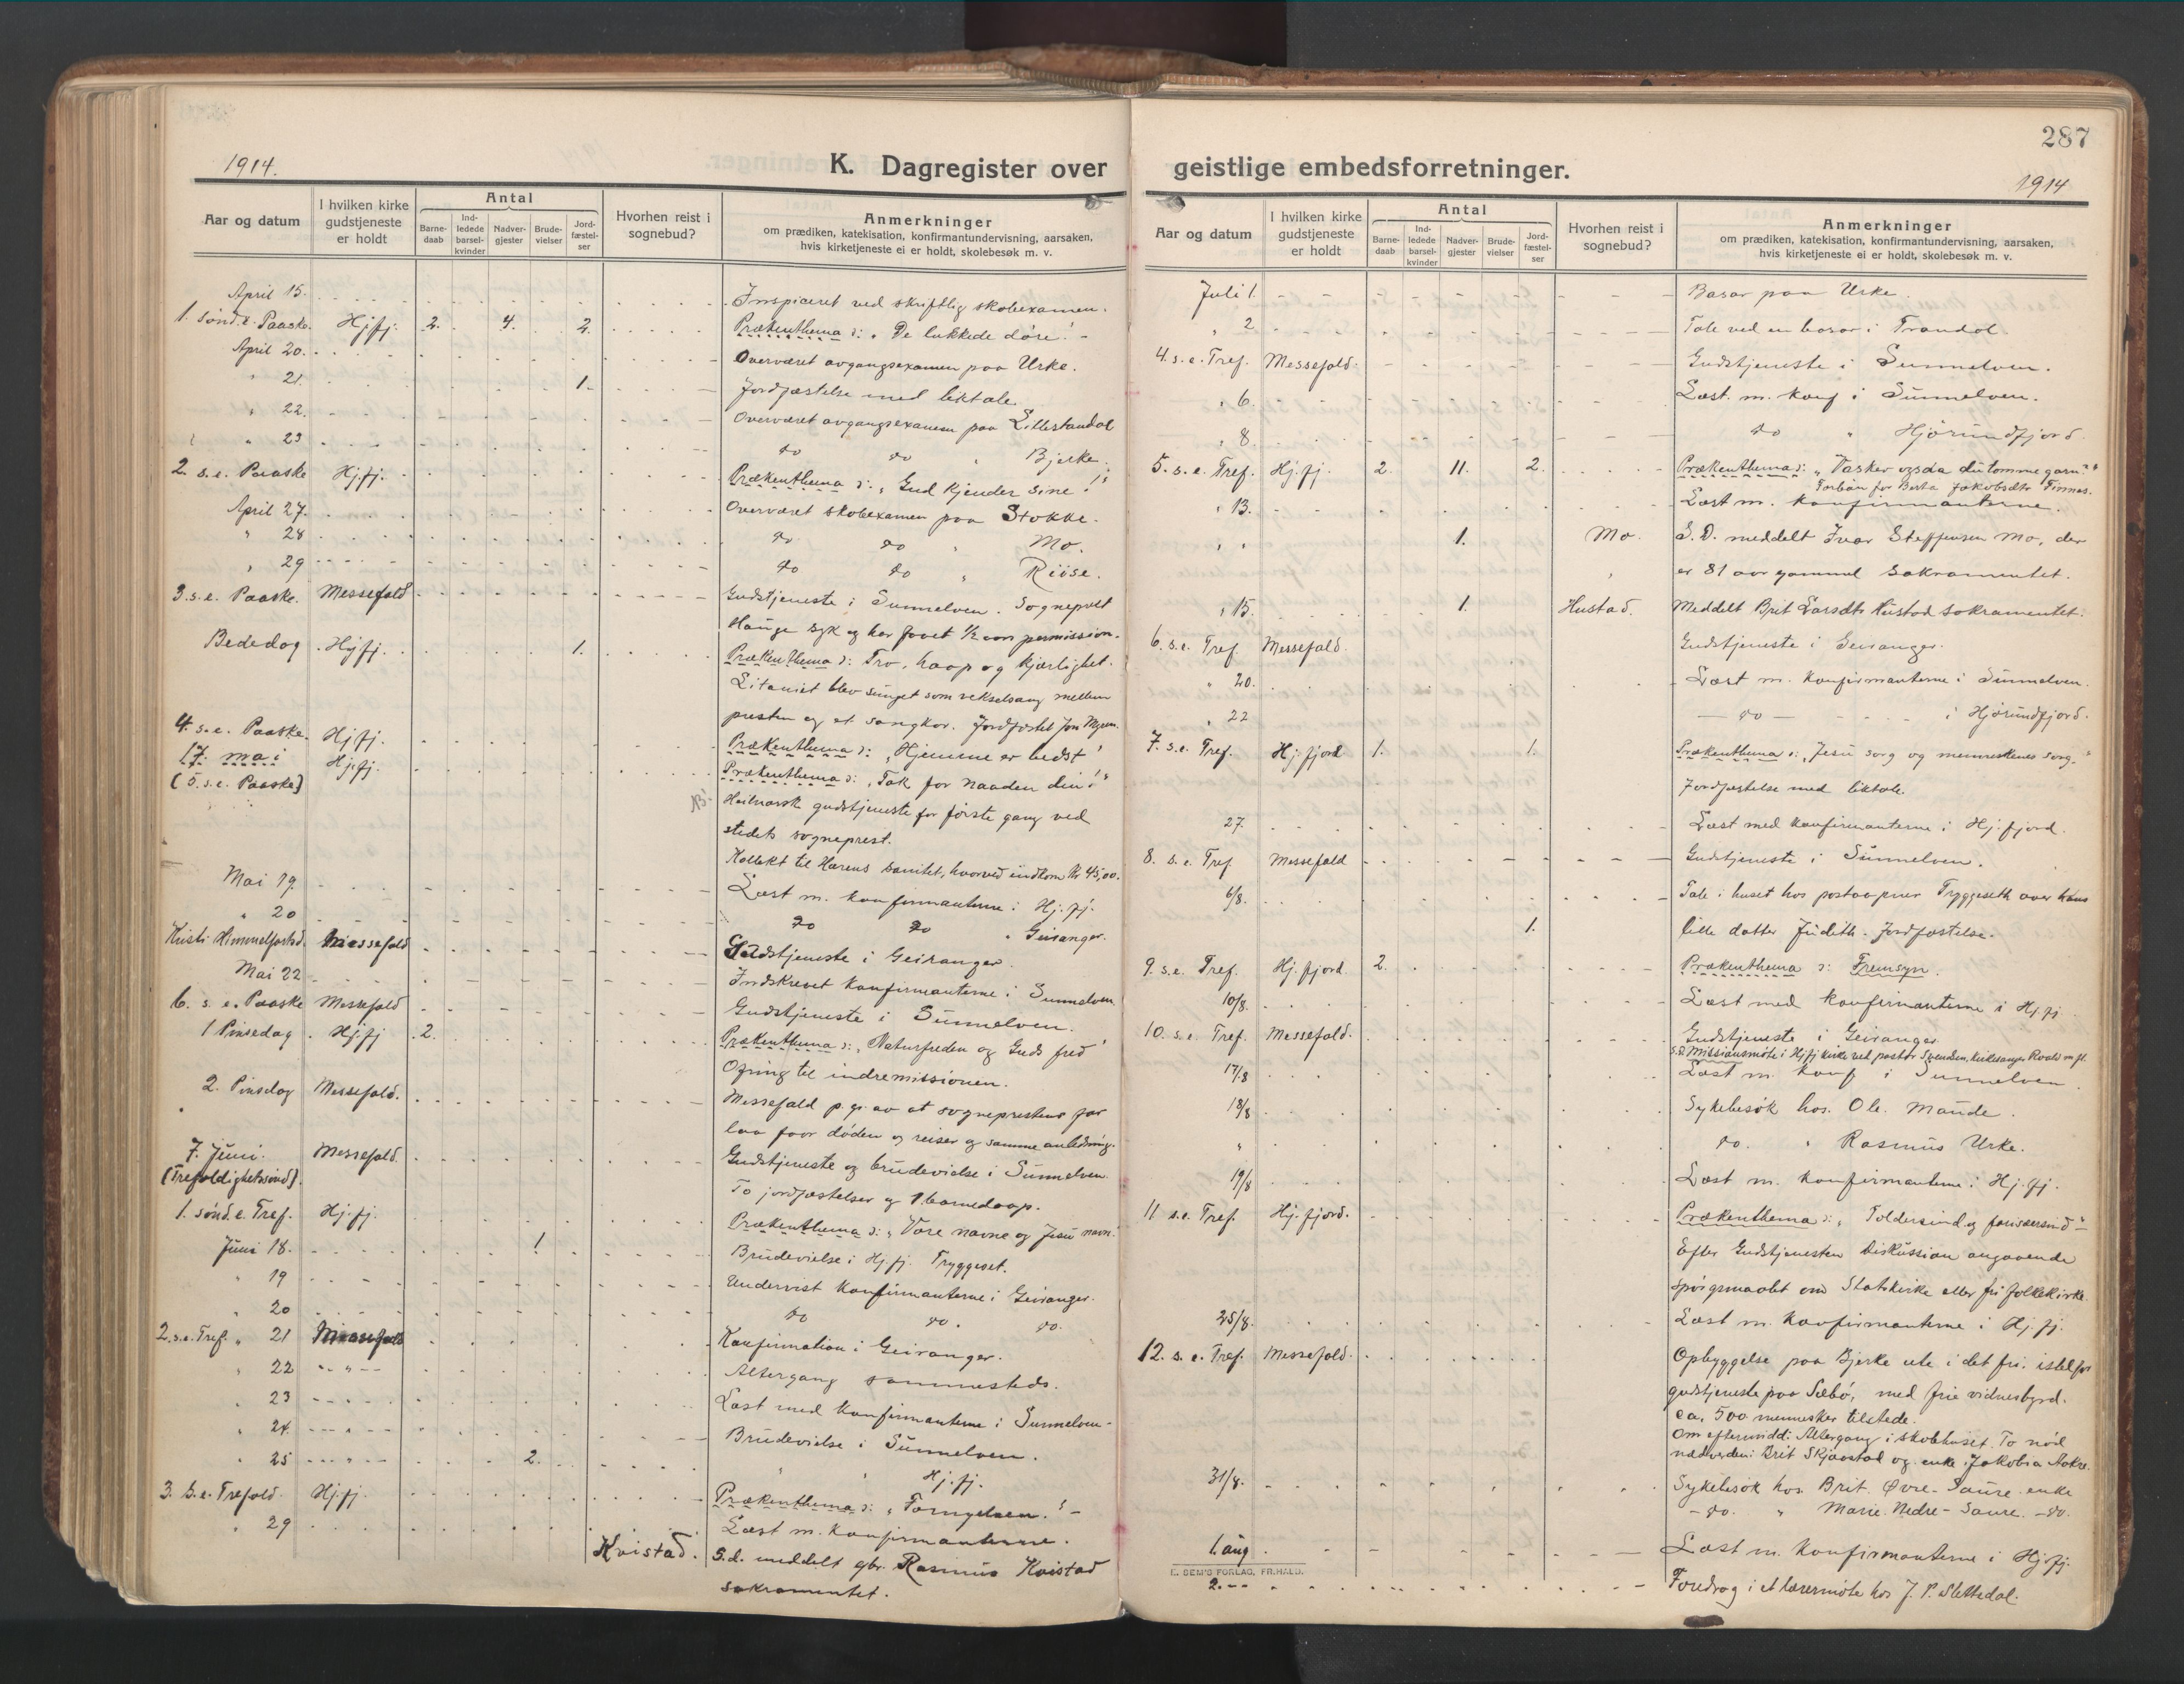 1914.
K. Dagregister over
Aar og datum
I hvilken kirke gudstjeneste er holdt
Antal
Barne-daab
Ind-ledede barsel-kvinder
Nadver-gjester
Brude-vielser
Jord-fæstel-ser
Hvorhen reist i sognebud?
Anmerkninger
om prædiken, katekisation, konfirmantundervisning, aarsaken,
hvis kirketjeneste ei er holdt, skolebesøk m. v.
April 15. Inspiceret ved skriftlig skolexamen.
1. sønd. e. Paaske. Hjfj. 2. 4. 2. Prækenthema ɔ: „De lukkede døre!
April 20. Overværet avgangsexamen paa Urke.
" 21. 1. Jordfæstelse med liktale.
" 22. Overværet avgangsexamen paa Lillestandal
" 23 do do " Bjerke.
2. s. e. Paaske Hj.fj. Prækenthema ɔ: „Gud kjender sine!"
April 27. Overværet skolexamen paa Stokke.
" 28 do do " Mo.
" 29 do do " Riise.
3. s. e. Paaske. Messefald Gudstjeneste i Sunnelven. Sogneprest
Hauge syk og har faaet 1/2 aars permission.
Bededag Hjfj. 1. Prækenthema ɔ: Tro, haap og kjærlighet.
Litaniet blev sunget som vekselsang mellem
presten og et sangkor. Jordfæstet Jon Myren.
4. s. e. Paaske. Hjfj. Prækenthema ɔ: „Hjemme er bedst!
17. mai Hj.fj. Prækenthema ɔ: „Tak for naaden din!"
(5. s. e. Paaske)
NB! Heilnorsk gudstjeneste for første gang ved
stedets sogneprest.
Kollekt til Hærens sanitet, hvorved indkom Kr 45,00.
Mai 19. Læst m. konfirmanterne i Hj.fj.
" 20 do do " Geiranger.
Kristi Himmelfartsd. Messefald Gudstjeneste i Geiranger.
Mai 22 Indskrevet konfirmanterne i Sunnelven.
6. s. e. Paaske Messefald Gudstjeneste i Sunnelven.
1 Pinsedag Hj.fj 2. Prækenthema ɔ: „Naturfreden og Guds fred!
Ofring til indremissionen.
2. Pinsdag Messefald. Messefald p. gr. av at sogneprestens far
laa for døden og reiser og samme anledning.
7. Juni. Messefald. Gudstjeneste og brudevielse i Sunnelven.
(Trefoldighetssønd).
To jordfæstelser og 1 barnedaap.
1. sønd. e. Tref. Hj.fj. Prækenthema ɔ: „Vore navne og Jesu navn!
Juni 18. 1. Brudevielse i Hj.fj. Tryggeset.
" 19 Undervist konfirmanterne i Geiranger.
" 20 do do. do.
2. s. e. Tref. " 21 Messefald Konfirmation i Geiranger.
" 22 Altergang sammesteds.
" 23 Læst med konfirmanterne i Sunnelven.
" 24. Brudevielse i Sunnelven.
" 25 2. " " Hj.fj.
3. s. e. Trefold. Hj.fj. Prækenthema ɔ: „Fornyelsen!"
" 29 Læst m. konfirmanterne.
Kvistad. S.d. meddelt gbr. Rasmus Kvistad
sakramentet.
287
geistlige embedsforretninger.
1914
Aar og datum
I hvilken kirke gudstjeneste er holdt
Antal
Barne-daab
Ind-ledede barsel-kvinder
Nadver-gjester
Brude-vielser
Jord-fæstel-ser
Hvorhen reist i sognebud?
Anmerkninger
om prædiken, katekisation, konfirmantundervisning, aarsaken,
hvis kirketjeneste ei er holdt, skolebesøk m. v.
Juli 1. Basar paa Urke.
" 2 Tale ved en basar i Trandal
4. s. e. Tref. Messefald. Gudstjeneste i Sunnelven.
" 6. Læst. m. konf i Sunnelven.
" 8. do " Hjørundfjord.
5. s. e. Tref. Hj.fj. 2. 11. 2. Prækenthema ɔ: „Vasker ogsaa du tomme garn?"
Forbøn for Berta Jakobsdtr Finnes.
" 13. Læst m. konfirmanterne.
" " 1. Mo. S. D. meddelt Ivar Steffensen Mo, der
er 81 aar gammel sakramentet.
" 15. 1. Hustad. Meddelt Brit Larsdtr Hustad sakramentet.
6. s. e. Tref. Messefald. Gudstjeneste i Geiranger.
" 20. Læst m. konfirmanterne i Sunnelven.
" 22 — do — i Hjørundfjord.
7. s. e. Tref. Hj.fjord 1. 1. Prækenthema ɔ: „Jesu sorg og menneskenes sorg."
Jordfæstelse med liktale.
27. Læst med konfirmanterne i Hj.fjord.
8. s. e. Tref Messefald Gudstjeneste i Sunnelven.
6/8. Tale i huset hos postaapner Tryggeseth over hans
1. lille datter Judith. Jordfæstelse.
9. s. e. Tref. Hj.fjord. 2. Prækenthema ɔ: Fremsyn.
10/8. Læst med konfirmanterne i Hj.fj
10. s. e. Tref. Messefald. Gudstjeneste i Geiranger
S.D. Missionsmøte i Hj.fj kirke ved pastor Svendsen, kirkesanger Roald m fl.
17/8 Læst m. konf i Sunnelven.
18/8 Sykebesøk hos. Ole Maude.
" do. " Rasmus Urke.
19/8 Læst m. konfirmanterne i Hj.fj.
11 s. e. Tref. Hj.fjord. Prækenthema ɔ: „Toldersind og farisæersind"
Efter Gudstjenesten diskussion angaaende
spørgsmaalet om Statskirke eller fri folkekirke.
25/8. Læst m. konfirmanterne i Hj.fj.
12. s. e. Tref. Messefald. Opbyggelse paa Bjerke ute i det fri. istedfor
gudstjeneste paa Sæbø, med frie vidnesbyrd.
ca. 500 mennesker tilstede.
Om eftermidd: Altergang i skolehuset. To nød
nadverden: Brit Skjaastad og enke Jakobia Nakre.
31/8. Sykebesøk hos Brit Øvre-Saure enke
— do. " Marie Nedre-Saure. — do.
1. aug. Læst m. konfirmanterne i Hj.fj.
E. SEM'S FORLAG, FR.HALD.
2. -- Foredrag i et lærermøte hos J. P. Slettedal.